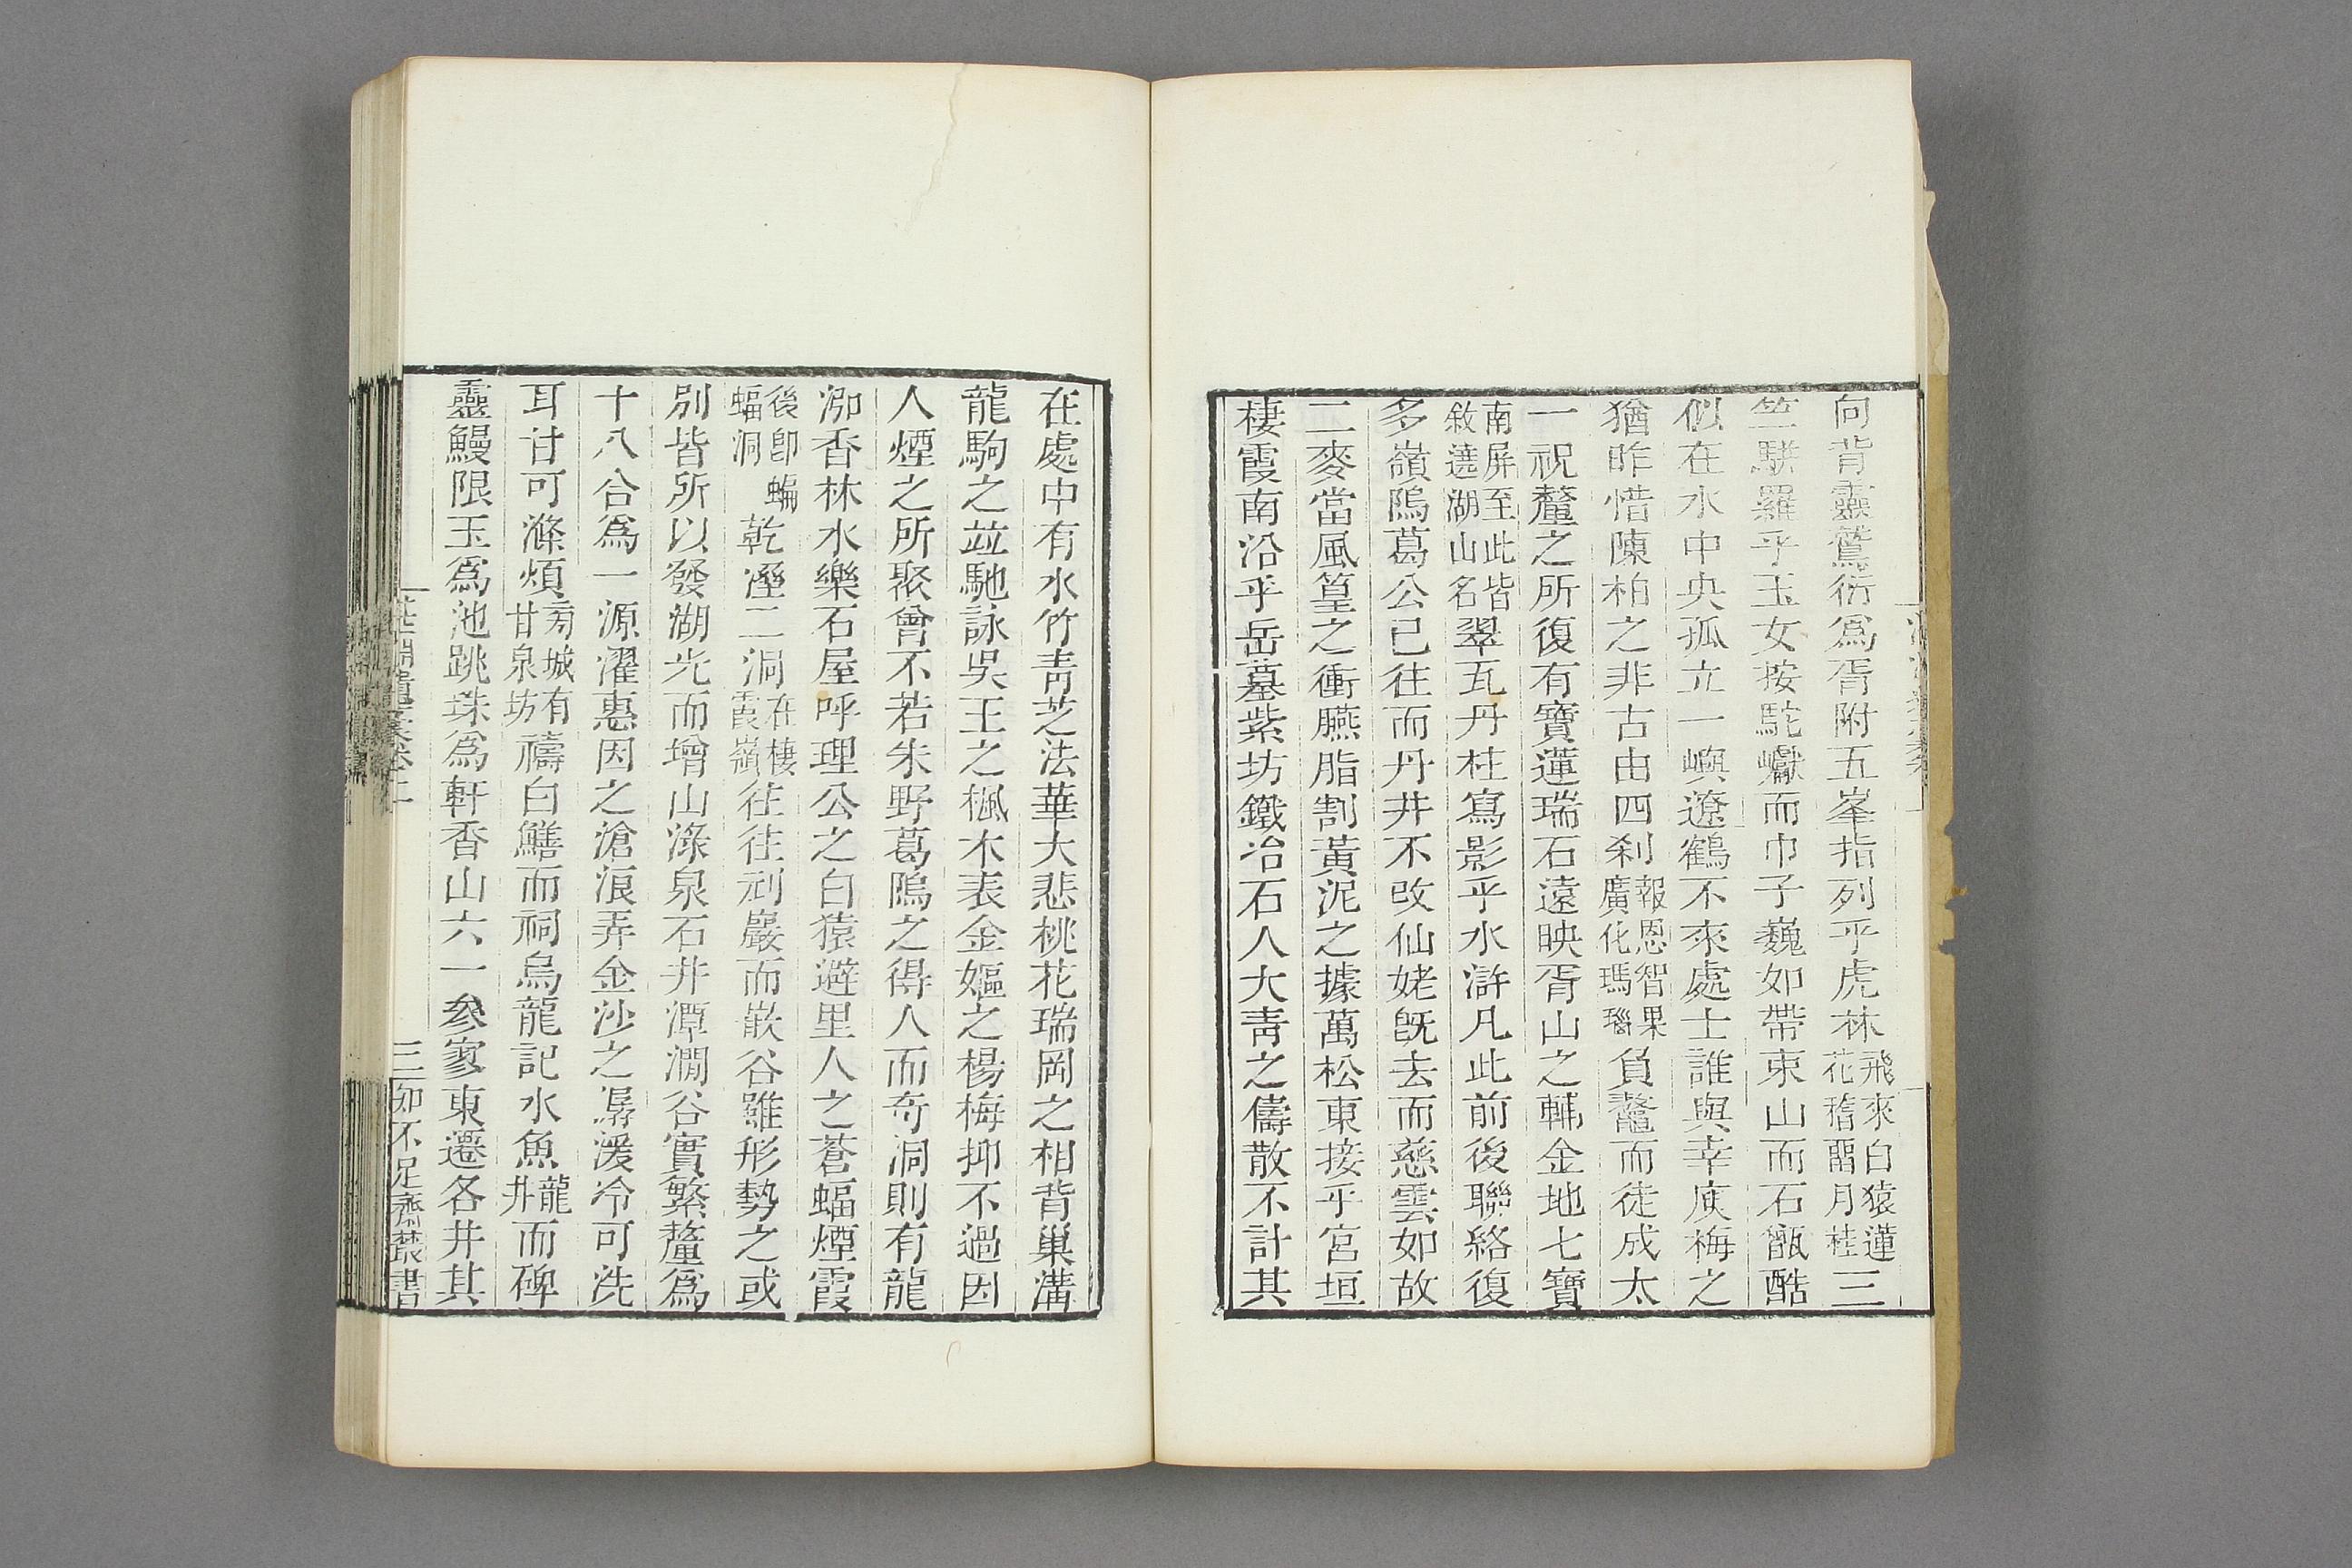 向背靈鷲衍爲胥附五峯指列乎虎林飛來白猿蓮花稽畱月桂三
竺駢羅乎玉女按駝巘而巾子巍如帶東山而石甑酷
似在水中央孤立一嶼遼鶴不來處士誰與幸庾梅之
猶昨惜陳柏之非古由四刹報恩智果廣化瑪瑙負鼇而徒成太
一祝釐之所復有寶蓮瑞石遠映胥山之輔金地七寶
南屏至此皆敘遶湖山名翠瓦丹柱寫影乎水滸凡此前後聯絡復
多嶺隖葛公已往而丹井不改仙姥旣去而慈雲如故
二麥當風篁之衝臙脂割黃泥之據萬松東接乎宮垣
棲霞南沿乎岳墓紫坊鐵冶石人大靑之儔散不計其
在處中有水竹靑芝法華大悲桃花瑞岡之相背巢溝
龍駒之竝馳詠吳王之楓木表金嫗之楊梅抑不過因
人煙之所聚曾不若朱野葛隖之得人而奇洞則有龍
泖香林水樂石屋呼理公之白猿避里人之蒼蝠煙霞
後卽蝙蝠洞乾溼二洞在棲霞嶺往往刓巖而嵌谷雖形勢之或
別皆所以發湖光而增山淥泉石井潭澗谷實繁釐爲
十八合爲一源濯惠因之滄浪弄金沙之潺湲冷可洗
耳甘可滌煩南城有甘泉坊禱白鱔而祠烏龍記水魚龍井而碑
靈鰻限玉爲池跳珠爲軒香山六一參寥東遷各井其
三 知不足齋叢書